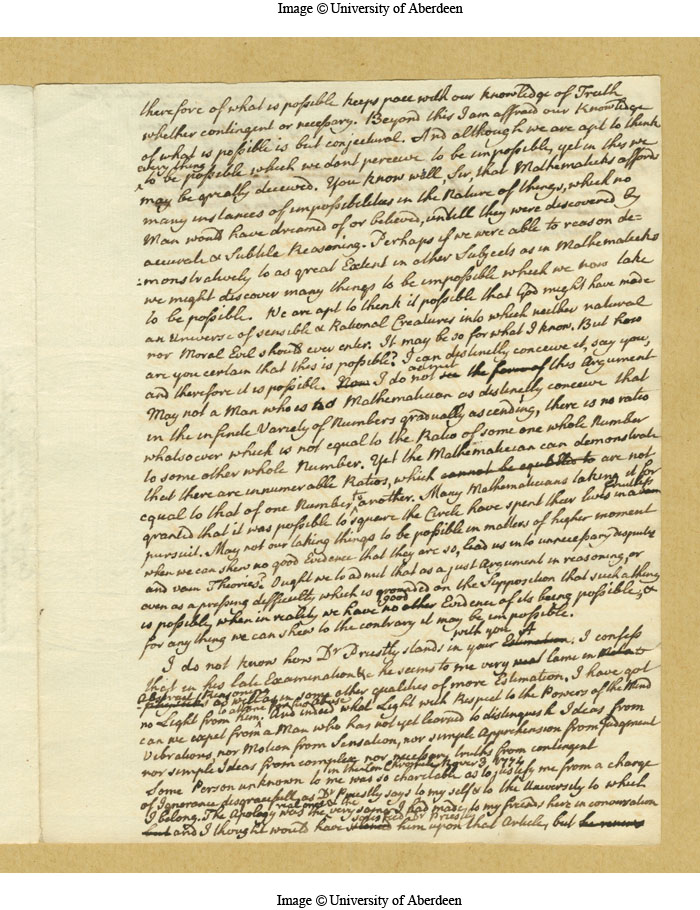 Image © University of Aberdeen
therefore of what is possible keeps pace with our knowledge of Truth
whether contingent or necessary. Beyond this I am affraid our Knowledge
of what is possible is but conjectural. And although we are apt to think
every thing
to be possible which we dont perceive to be impossible, yet in this we
may be greatly deceived. You know well, Sir, that Mathematicks affords
many instances of impossibilities in the Nature of things, which no
Man would have dreamed of or believed, untill they were discovered by
accurate & subtile Reasoning. Perhaps if we were able to reason de-
monstratively to as great Extent in other Subjects as in Mathematicks
we might discover many things to be impossible which we now take
to be possible. We are apt to think it possible that God might have made
an Universe of sensible & Rational Creatures into which neither natural
nor Moral Evil should ever enter. It may be so for what I know. But how
are you certain that this is possible? I can distinctly conceive it, say you,
and therefore it is possible. I do not admit the form of this Argument
May not a Man who is no Mathematician as distinctly conceive that
in the infinite Variety of Numbers gradually ascending, there is no ratio
whatsoever which is not equal to the Ratio of some one whole Number
to some other whole Number. Yet the Mathematician can demonstrate
that there are innumerable Ratios, which cannot be equal to are not
equal to that of one Number to another. Many Mathematicians taking it for
granted that it was possible to square the Circle have spent their lives in a fruitless
pursuit. May not our taking things to be possible in matters of higher moment
when we can shew no good Evidence that they are so, lead us into unnecessary disputes
and vain Theories? Ought we to admit that as a just Argument in reasoning, or
even as a pressing difficulty which is grounded on the Supposition that such a thing
is possible, when in reality we have no good other Evidence of its being possible, &
for any thing we can shew to the contrary it may be impossible.
I do not know how Dr Priestly stands in your Estimation. I confess
that in his late Examination &c he seems to me very lame in
Abstract Reasoning as well as in some other qualities of more Estimation. I have got
no Light from him. And indeed what Light with Respect to the Powers of the Mind
can we expect from a Man who has not yet learned to distinguish Ideas from
Vibrations, nor Motion from Sensation, nor simple Apprehension from Judgment
nor simple Ideas from complex, nor necessary truths from contingent
in the Lon Chronicle Nover 3 1774
Some Person unknown to me was so charitable as to justify me from a charge
of Ignorance disgracefull as Dr Priestly says to my self & to the University to which
I belong. The Apology was the very same I had made to my friends here in conversation
and I thought would have satisfied Dr Priestly him upon that Article, but
Image © University of Aberdeen